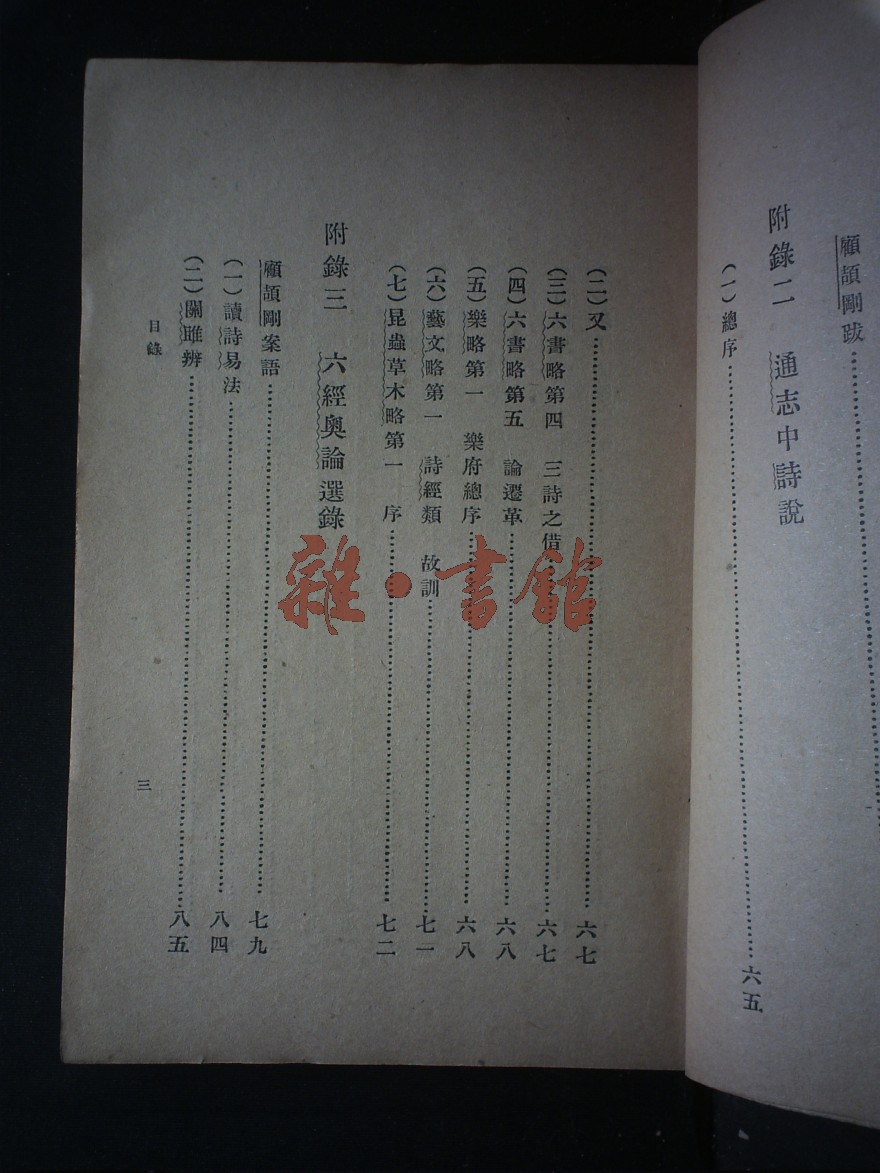 顧頡剛跋
附錄二　通志中詩說
（一）總序……六五
（二）又……六七
（三）六書略第四　三詩之借……六七
（四）六書略第五　論遷革……六八
（五）樂略第一　樂府總序……六八
（六）藝文略第一　詩經類　故訓……七一
（七）昆蟲草木略第一　序……七二
附錄三　六經奧論選錄
顧頡剛案語……七九
（一）讀詩易法……八四
（二）關雎辨……八五
目錄
三
雜·書館